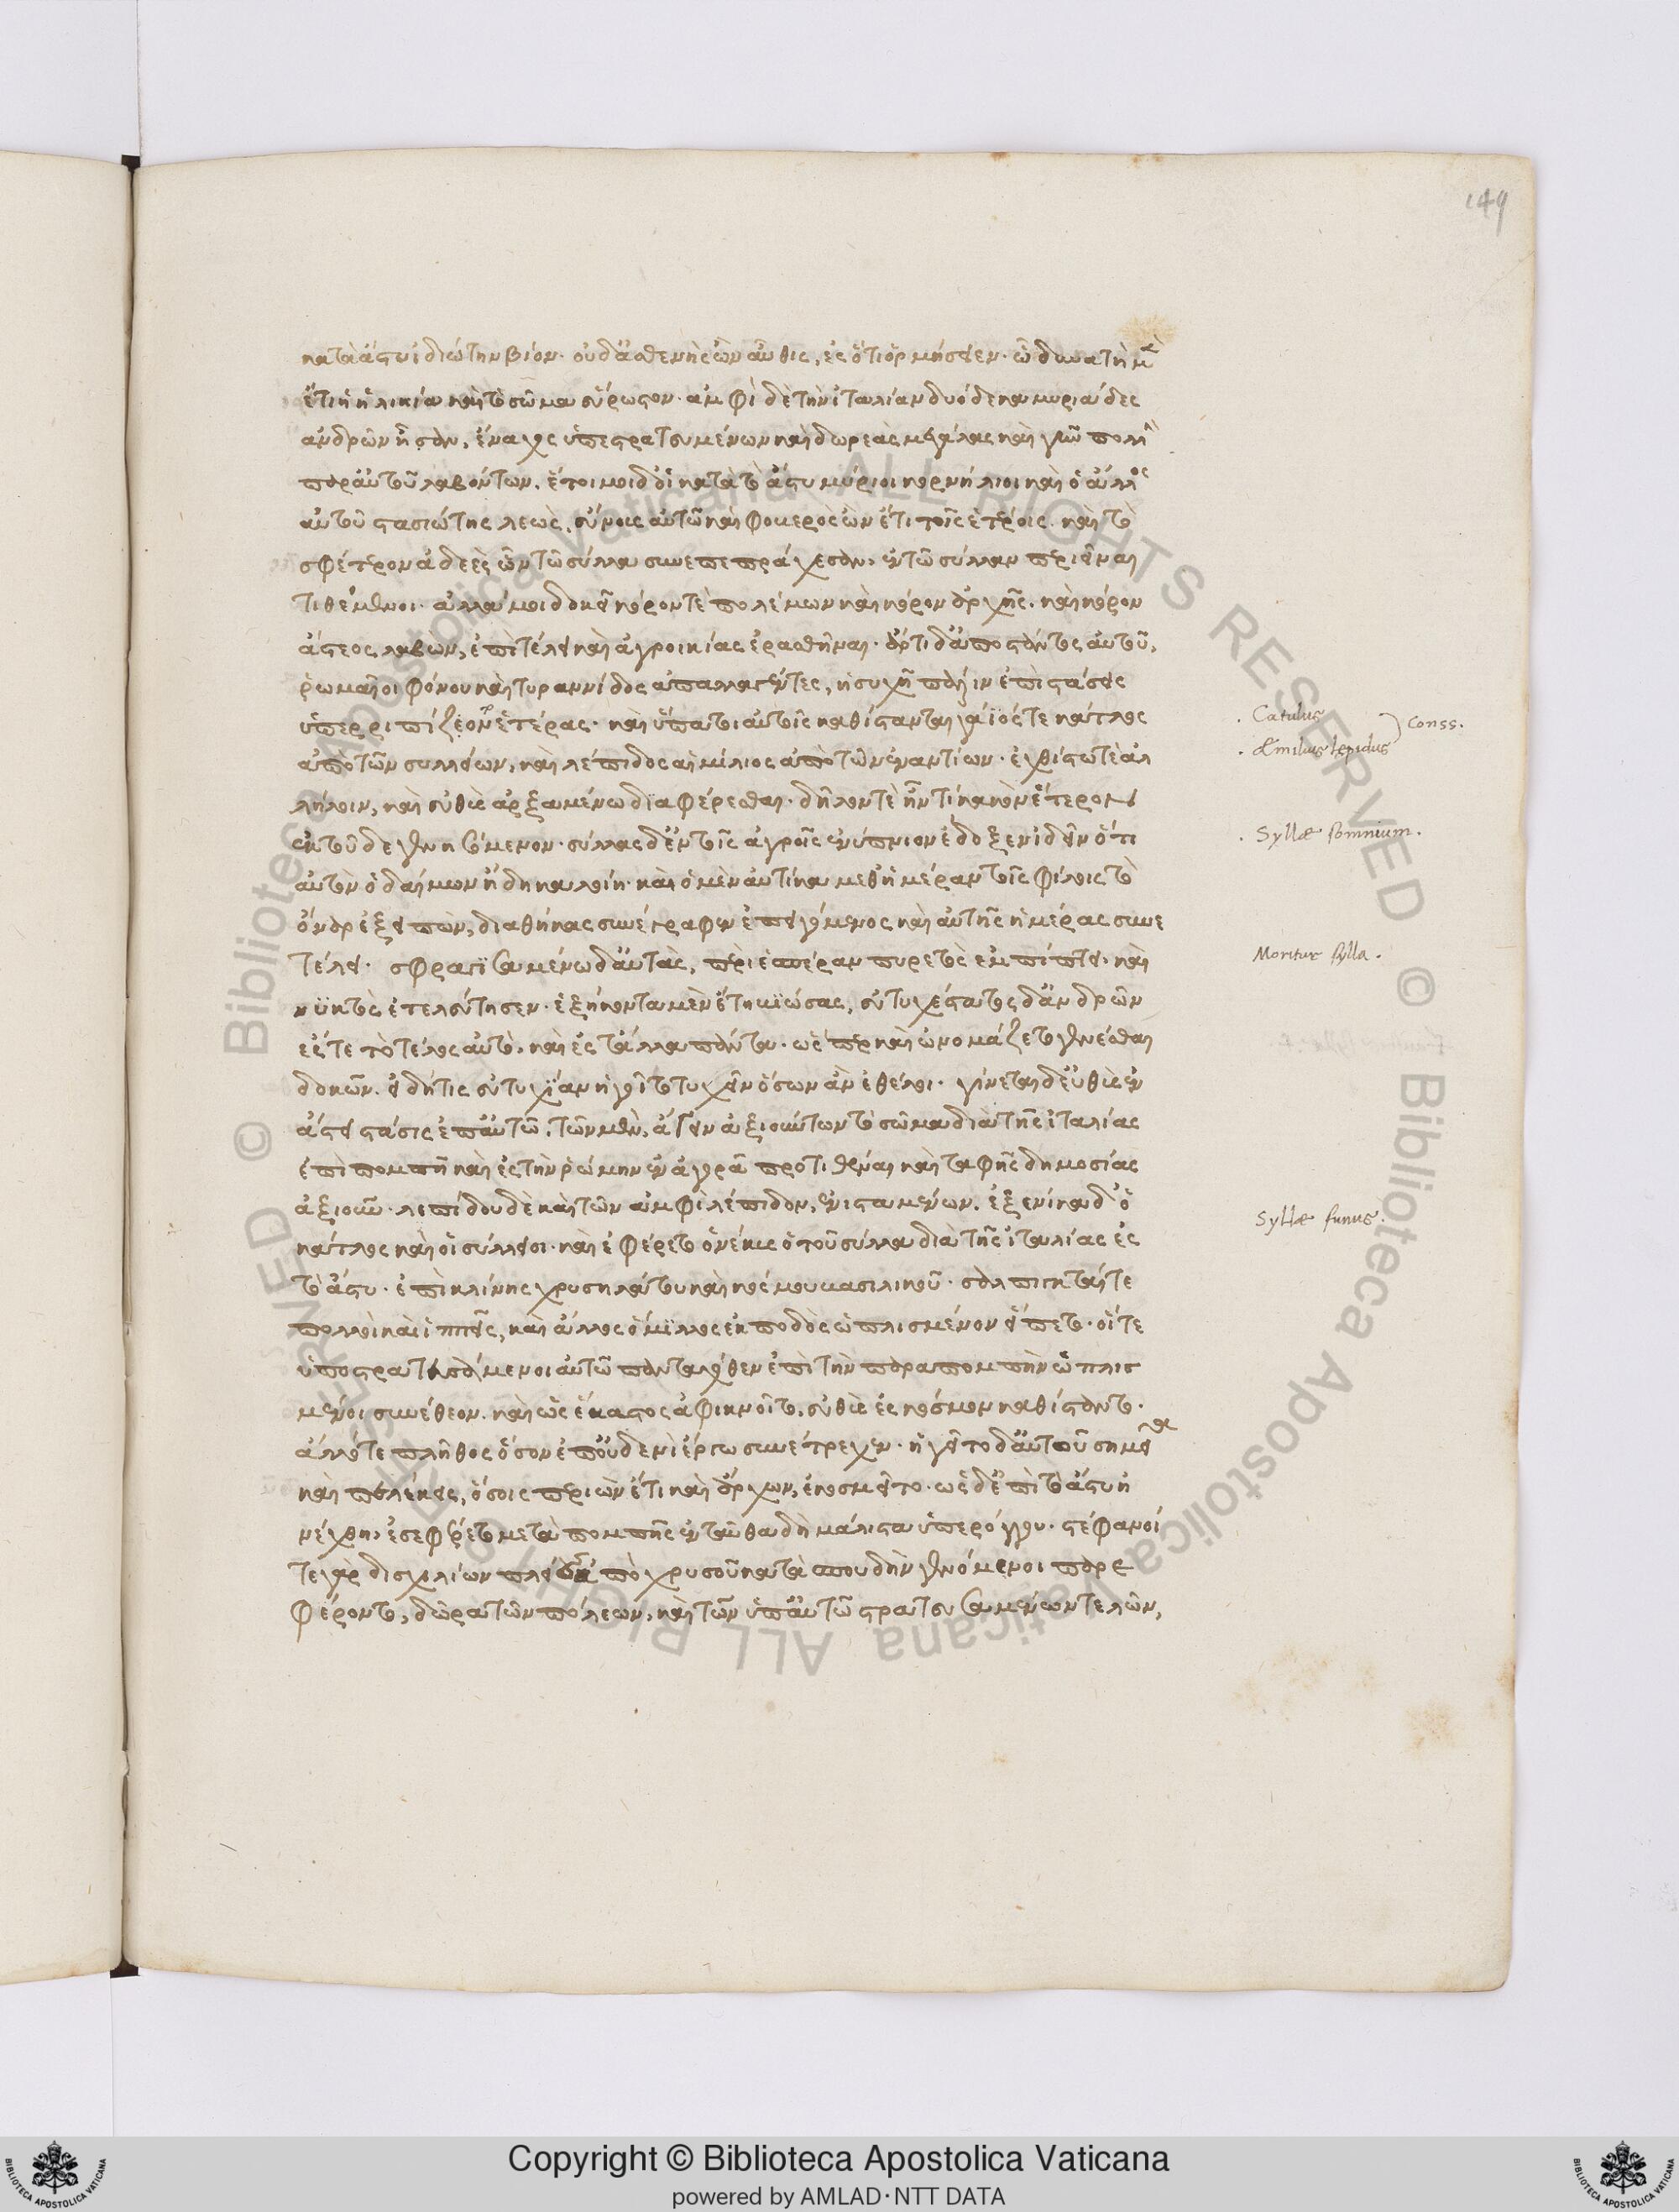 149
κατὰ ἄστυ ἰδιώτην βίον· οὐδ' ἀσθενὴς ὢν αὖθις, ἐς ὅ τι ὁρμήσειεν· ᾧ δυνατὴ μὲν
ἔτι ἡ ἡλικία καὶ τὸ σῶμα εὔρωστον· ἀμφὶ δὲ τὴν ἰταλίαν δυόδεκα μυριάδες
ἀνδρῶν ἦσαν, ἔναγχος ὑπεστρατευμένων καὶ δωρεὰς μεγάλας καὶ γῆν πολλὴν
παρ' αὐτοῦ λαβόντων. ἕτοιμοι δ' οἱ κατὰ τὸ ἄστυ μύριοι κορνήλιοι καὶ ὁ ἄλλος
αὐτοῦ στασιώτης λεὼς, εὔνους αὐτῷ καὶ φοβερὸς ὢν ἔτι τοῖς ἑτέροις. καὶ τὸ
σφέτερον ἀδεὲς ὧν τῷ σύλλα συνεπεπράχεσαν, ἐν τῷ σύλλαν περιεῖναι
τιθέμενοι. ἀλλά μοι δοκεῖ κόρον τὲ πολέμων καὶ κόρον ἀρχῆς. καὶ κόρον
ἄστεος λαβὼν, ἐπὶ τέλει καὶ ἀγροικίας ἐρασθῆναι. ἄρτι δ' ἀποστάντος αὐτοῦ,
ῥωμαῖοι φόνου καὶ τυραννίδος ἀπαλλαγέντες, ἡσυχῆ πάλιν ἐπὶ στάσεις
ὑπερριπίζεοντο ἑτέρας· καὶ ὕπατοι αὐτοῖς καθίστανται γάϊός τε κάτλος
ἀπὸ τῶν συλλείων, καὶ λέπιδος αἰμίλιος ἀπὸ τῶν ἐναντίων. ἐχθίστω τὲ ἀλ
λήλοιν, καὶ εὐθὺς ἀρξαμένω διαφέρεσθαι. δῆλόν τὲ ἦν τί κακὸν ἕτερον
ἐκ τοῦδε γενησόμενον· σύλλας δ' ἐν τοῖς ἀγροῖς ἐνύπνιον ἔδοξεν ἰδεῖν ὅτι
αὐτὸν ὁ δαίμων ἤδη καλοίη· καὶ ὁ μὲν αὐτίκα μεθ' ἡμέραν τοῖς φίλοις τὸ
ὄναρ ἐξειπὼν, διαθήκας συνέγραφεν ἐπειγόμενος καὶ αὐτῆς ἡμέρας συνε
τέλει. σφραγισαμένω δ' αὐτὰς, περὶ ἑσπέραν πυρετὸς ἐμπίπτει. καὶ
νυκτὸς ἐτελεύτησεν. ἑξήκοντα μὲν ἔτη βιώσας, εὐτυχέστατος δ' ἀνδρῶν
ἐς τε τὸ τέλος αὐτὸ, καὶ ἐς τἄλλα πάντα. ὡς περ καὶ ὠνομάζετο γενέσθαι
δοκῶν. εἰ δή τις εὐτυχίαν ἡγοῖτο τυχεῖν ὅσων ἂν ἐθέλοι. γίνεται δ' εὐθὺς ἐν
ἄστει στάσις ἐπ' αὐτῷ. τῶν μὲν, ἄγειν ἀξιούντων τὸ σῶμα διὰ τῆς ἰταλίας
ἐπὶ πομπῇ καὶ ἐς τὴν ῥώμην ἐν ἀγορᾷ προτιθέναι καὶ ταφῆς δημοσίας
ἀξιοῦν. λεπίδου δὲ καὶ τῶν ἀμφὶ λέπιδον, ἐνισταμένων. ἐξενίκα δ' ὁ
κάτλος καὶ οἱ σύλλειοι. καὶ ἐφέρετο ὁ νέκυς ὁ τοῦ σύλλα διὰ τῆς ἰταλίας ἐς
τὸ ἄστυ. ἐπὶ κλίνης χρυσηλάτου καὶ κόσμου βασιλικοῦ. σαλπιγκταί τε
πολλοὶ καὶ ἱππεῖς, καὶ ἄλλος ὅμιλος ἐκ ποδὸς ὡπλισμένον εἵπετο. οἵ τε
ὑποστρατευσάμενοι αὐτῷ πανταχόθεν ἐπὶ τὴν παραπομπὴν ὡπλισ
μένοι συνέθεον. καὶ ὡς ἕκαστος ἀφικνοῖτο, εὐθὺς ἐς κόσμον καθίσταντο.
ἄλλό τε πλῆθος ὅσον ἐπ' οὐδενὶ ἔργω συνέτρεχεν. ἡγεῖτο δ' αὐτοῦ σημεῖα
καὶ πελέκεις, ὅσοις περιὼν ἔτι καὶ ἄρχων, ἐκοσμεῖτο. ὡς δ' ἐπὶ τὸ ἄστυ ἠ
νέχθη, ἐσεφέρετο μετὰ πομπῆς ἐνταῦθα δὴ μάλιστα ὑπερόγκου. στέφανοί
τε γὰρ δισχιλίων πλείους ἀπὸ χρυσοῦ κατὰ σπουδὴν γενόμενοι παρε
φέροντο, δῶρα τῶν πόλεων, καὶ τῶν ὑπ' αὐτῷ στρατευσαμένων τελῶν,
. Catulus
. Æmilius lepidus
Conss.
. Syllæ somnium.
Moritur sylla.
Syllæ funus.
Copyright © Biblioteca Apostolica Vaticana
powered by AMLAD·NTT DATA